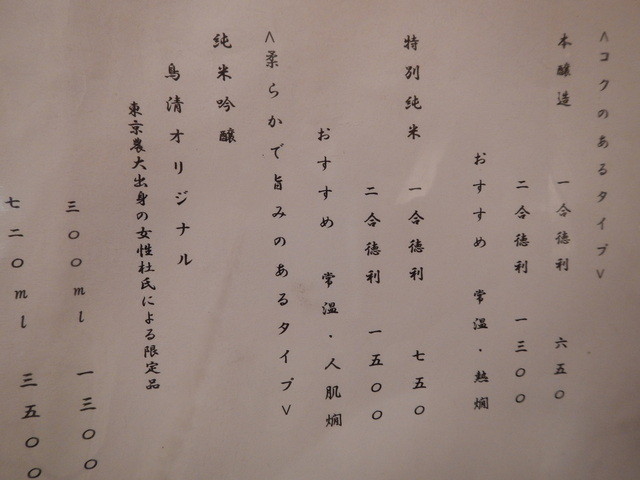 <コクのあるタイプ>
本醸造 一合徳利 六五〇
二合徳利 一三〇〇
おすすめ 常温・熱燗
特別純米 一合徳利 七五〇
二合徳利 一五〇〇
おすすめ 常温・人肌燗
<柔らかで旨みのあるタイプ>
純米吟醸
鳥清オリジナル
東京農大出身の女性杜氏による限定品
三〇〇ml 一三〇〇
七二〇ml 三五〇〇